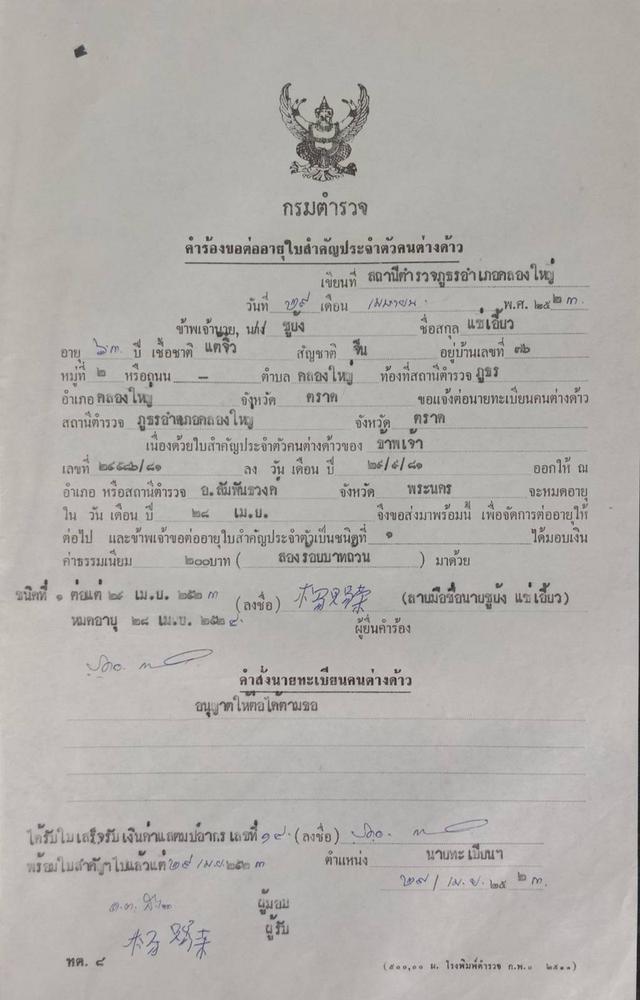 กรมตำรวจ
คำร้องขอต่ออายุใบสำคัญประจำตัวคนต่างด้าว
เขียนที่ สถานีตำรวจภูธรอำเภอคลองใหญ่
วันที่ ๒๙ เดือน เมษายน พ.ศ. ๒๕๒๓
ข้าพเจ้านาย, นาง ชูยัง ชื่อสกุล แซ่เอี้ยว
อายุ ๖๓ ปี เชื้อชาติ แต้จิ๋ว สัญชาติ จีน อยู่บ้านเลขที่ ๓๖
หมู่ที่ ๒ หรือถนน — ตำบล คลองใหญ่ ท้องที่สถานีตำรวจ ภูธร
อำเภอ คลองใหญ่ จังหวัด ตราด ขอแจ้งต่อนายทะเบียนคนต่างด้าว
สถานีตำรวจ ภูธรอำเภอคลองใหญ่ จังหวัด ตราด
เนื่องด้วยใบสำคัญประจำตัวคนต่างด้าวของ ข้าพเจ้า
เลขที่ ๒๙๕๘๖/๘๑ ลง วัน เดือน ปี ๒๙/๙/๘๑ ออกให้ ณ
อำเภอ หรือสถานีตำรวจ อ.สัมพันธวงศ์ จังหวัด พระนคร จะหมดอายุ
ใน วัน เดือน ปี ๒๘ เม.ย. จึงขอส่งมาพร้อมนี้ เพื่อจัดการต่ออายุให้
ต่อไป และข้าพเจ้าขอต่ออายุใบสำคัญประจำตัวเป็นชนิดที่ ๑ ได้มอบเงิน
ค่าธรรมเนียม ๒๐๐บาท (สองร้อยบาทถ้วน) มาด้วย
ชนิดที่ ๑ ต่อแต่ ๒๙ เม.ย. ๒๕๒๓ (ลงชื่อ) (ลายมือชื่อนายชูยัง แซ่เอี้ยว)
หมดอายุ ๒๘ เม.ย. ๒๕๒๔ ผู้ยื่นคำร้อง
คำสั่งนายทะเบียนคนต่างด้าว
อนุญาตให้ต่อได้ตามขอ
ได้รับใบเสร็จรับเงินค่าแสตมป์อากร เลขที่ ๑๙ (ลงชื่อ)
พร้อมใบสำคัญฯไปแล้วแต่ ๒๙ เม.ย. ๒๕๒๓ ตำแหน่ง นายทะเบียนฯ
๒๙ / เม.ย. ๒๕๒๓
ผู้มอบ
ผู้รับ
ทต. ๘ (๕๐๐,๐๐ ผ. โรงพิมพ์ตำรวจ ก.พ.๐ ๒๕๑๑)